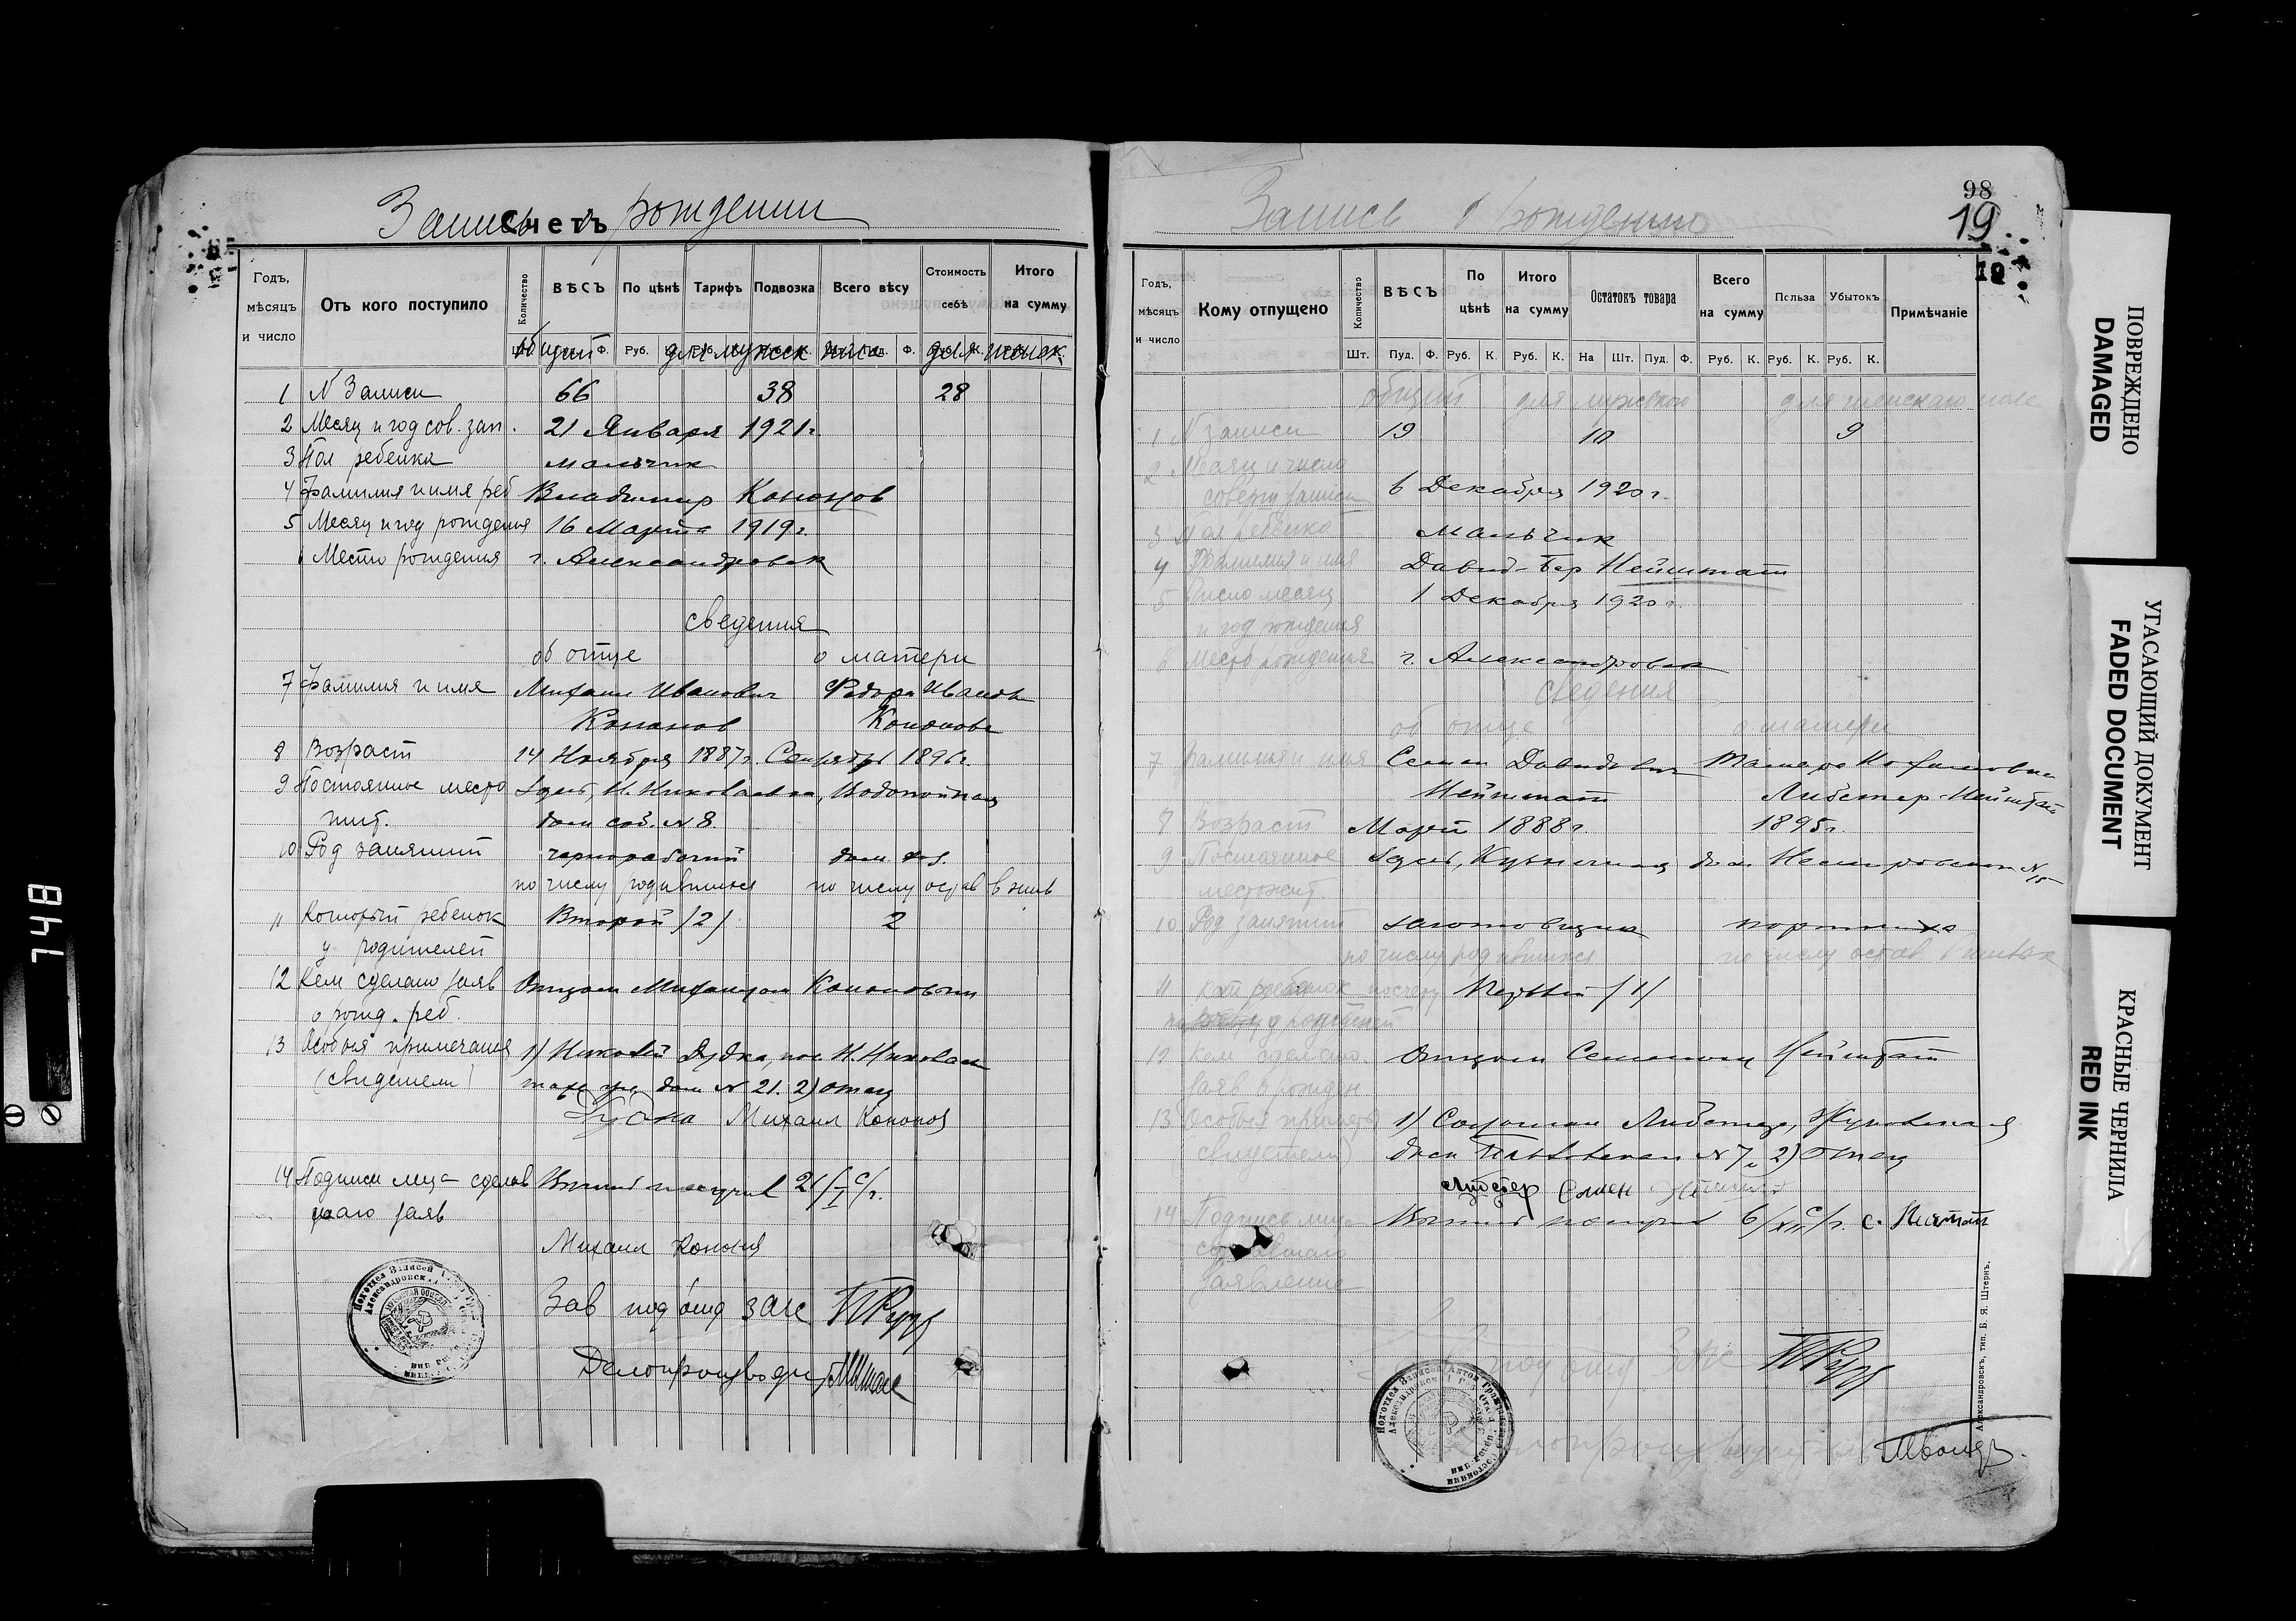 Запись о рождении
Счетъ
Годъ, мѣсяцъ и число
Отъ кого поступило
Количество
ВѢСЪ
По цѣнѣ
Тарифъ
Подвозка
Всего вѣсу
Стоимость себѣ
Итого на сумму
общий для мужск пола для женск.
1 N Записи 66 38 28
2 Месяц и год сов. зап. 21 Января 1921 г.
3 Пол ребенка мальчик
4 Фамилия и имя реб Владимир Кононов
5 Месяц и год рождения 16 Марта 1919 г.
6 Место рождения г. Александровск
сведения
об отце о матери
7 Фамилия и имя Михаил Иванович Федора Иванов
Кононов Кононова
8 Возраст 14 Ноября 1887 г. Сентябрь 1896 г.
9 Постоянное место здесь, Н. Николаевка, Водопойная
жит. дом соб. N 8.
10 Род занятий чернорабочий дом хоз.
по числу родившихся по числу остав в жив
11 Который ребенок Второй /2/ 2
у родителей
12 Кем сделано заяв Отцом Михаилом Кононовым
о рожд. реб.
13 Особыя примечания 1) Николай Дудка, пос. Н. Николаев
(свидетели) дом N 21. 2) отец
Дудка Михаил Кононов
14 Подписи лица сделав Выпись получил 21/I с/г.
шаго заяв
Михаил Кононов
Зав подотд ЗАГС
Делопроизводит
98
19
19
Запись о рождении
Годъ, мѣсяцъ и число
Кому отпущено
Количество
ВѢСЪ
По цѣнѣ
Итого на сумму
Остатокъ товара
Всего на сумму
Польза
Убытокъ
Примѣчаніе
Шт. Пуд. Ф. Руб. К. Руб. К. На Шт. Пуд. Ф. Руб. К. Руб. К. Руб. К.
общий для мужского для женскаго пола
1 N записи 19 10 9
2 Месяц и число
соверш записи 6 Декабря 1920 г.
3 Пол ребенка Мальчик
4 Фамилия и имя Давид-Бер Нейштат
5 Число месяц 1 Декабря 1920 г.
и год рождения
6 Место рождения г. Александровск
сведения
об отце о матери
7 Фамилия и имя Семен Давидович Тамара
Нейштат Либстер-Нейштат
8 Возраст Март 1888 г. 1895 г.
9 Постоянное здесь, Кузнечная дом N 15
местожит
10 Род занятий заготовщик портниха
по числу родившихся по числу остав в живых
11 Первый /1/
у родителей
12 Кем сделано Отцом Семеном Нейштат
заяв о рожден
13 Особыя примечан 1) Соломон Либстер, Жуковская
(свидетели) дом N 7, 2) Отец
Либстер Семен Нейштат
14 Подпись лица Выпись получил 6/XII с/г. С. Нештат
сделавшаго
Заявление
подотд ЗАГС
Александровскъ, тип. Б. Я. Штернъ.
ПОВРЕЖДЕНО
DAMAGED
УГАСАЮЩИЙ ДОКУМЕНТ
FADED DOCUMENT
КРАСНЫЕ ЧЕРНИЛА
RED INK
748